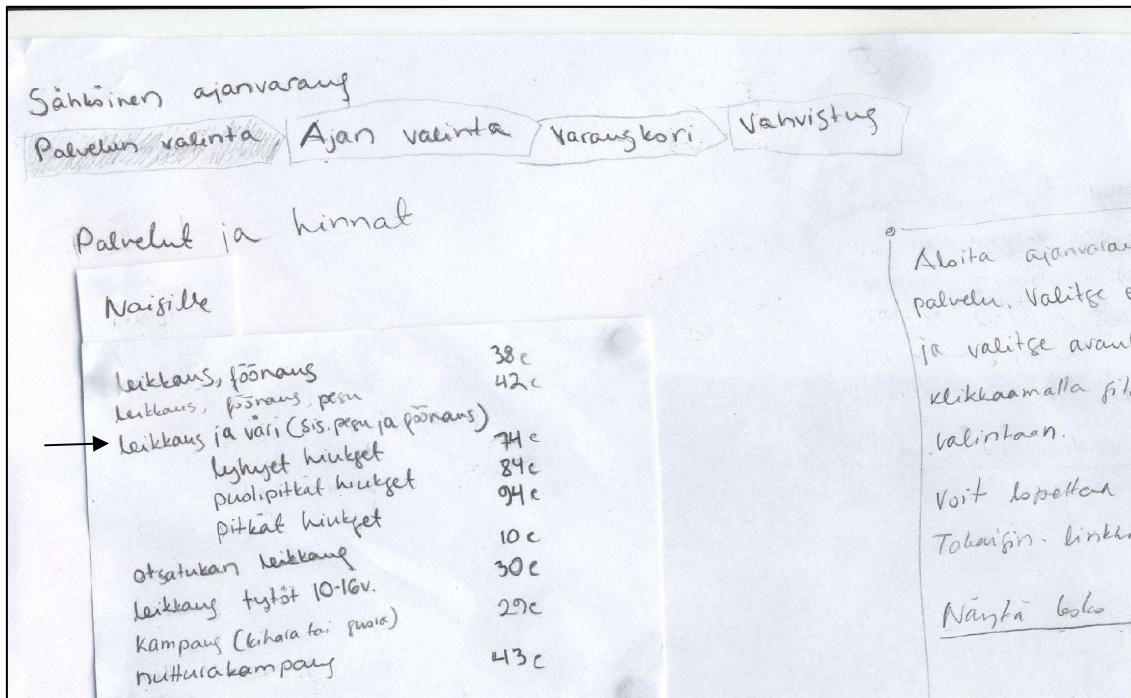 Sähköinen ajanvaraus
Palvelun valinta Ajan valinta Varauskori Vahvistus
Palvelut ja hinnat
Naisille
leikkaus, föönaus 38e
leikkaus, föönaus, pesu 42e
leikkaus ja väri (sis. pesu ja föönaus)
lyhyet hiukset 74e
puolipitkät hiukset 84e
pitkät hiukset 94e
otsatukan leikkaus 10e
leikkaus tytöt 10-16v. 30e
Kampaus (kihara tai suora) 29e
nutturakampaus 43e
Aloita ajanvarau
palvelu. Valitse
ja valitse
klikkaamalla
valintaan.
Voit lopettaa
Takaisin-linkki
Näytä koko